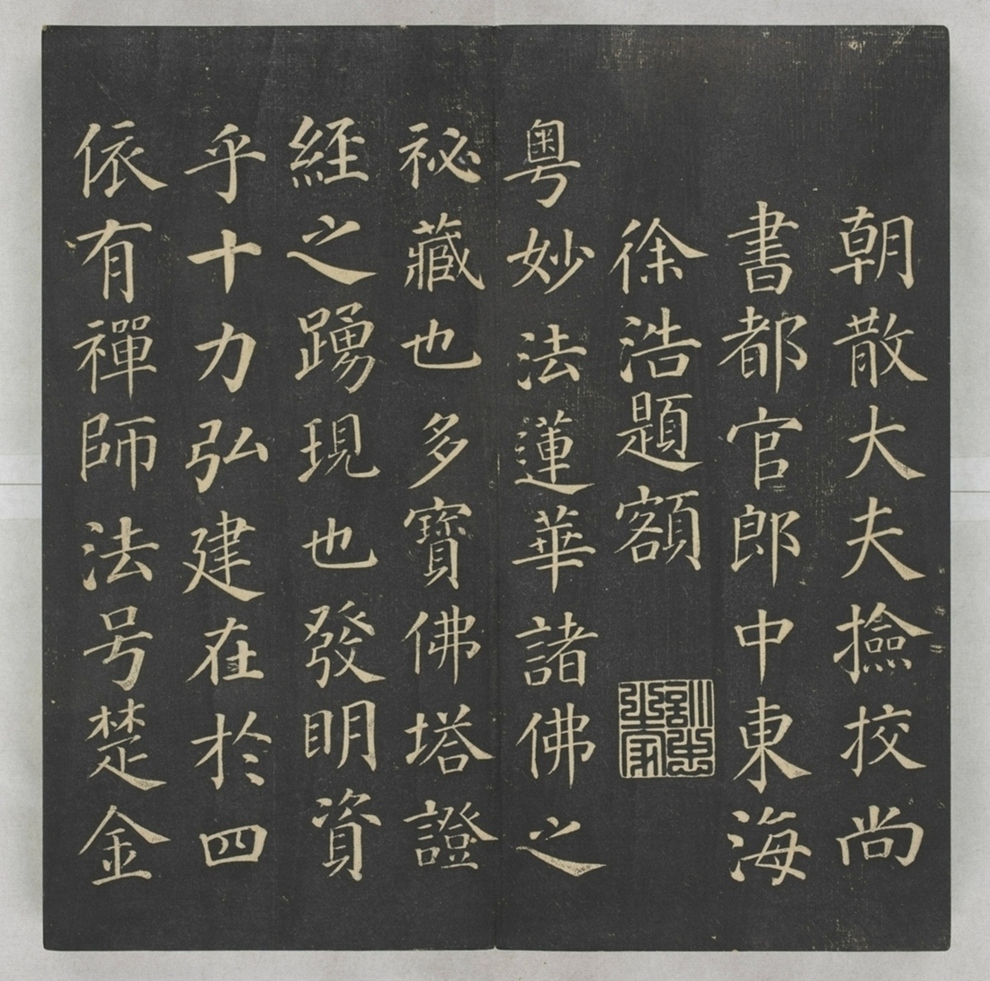 朝散大夫撿挍尚
書都官郎中東海
徐浩題額
粤妙法蓮華諸佛之
祕藏也多寶佛塔證
經之踴現也發明資
乎十力弘建在於四
依有禪師法号楚金